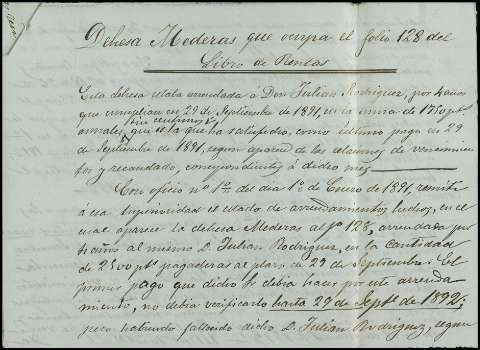 Dehesa Mederas que ocupa el folio 128 del
Libro de Rentas
Esta dehesa estaba arrendada á Don Julian Rodriguez, por 4 años
que cumplian en 29 de Septiembre de 1891, en la suma de 1750 pts.
sin centimos
anuales, que es la que ha satisfecho, como ultimo pago en 29
de Septiembre de 1891, segun aparece de las columnas de vencimien-
tos y recaudado, correspondientes á dicho mes
Con oficio nº 1º del dia 1º de Enero de 1891, remiti
á esa Superioridad el estado de arrendamientos hechos, en el
cual aparece la dehesa Mederas al fº 128, arrendada por
años al mismo D. Julian Rodriguez, en la cantidad
de 2500 pts. pagaderas al plazo de 29 de Septiembre. El
primer pago que dicho Sr. debia hacer por este arrenda-
miento, no debia verificarlo hasta 29 de Septe. de 1892;
pero habiendo fallecido dicho D. Julian Rodriguez, segun